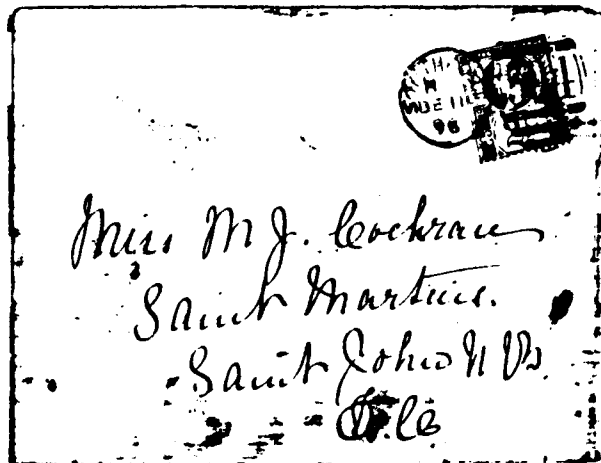 96
Miss M J. Cochran
Saint Martins.
Saint John N B.
Co